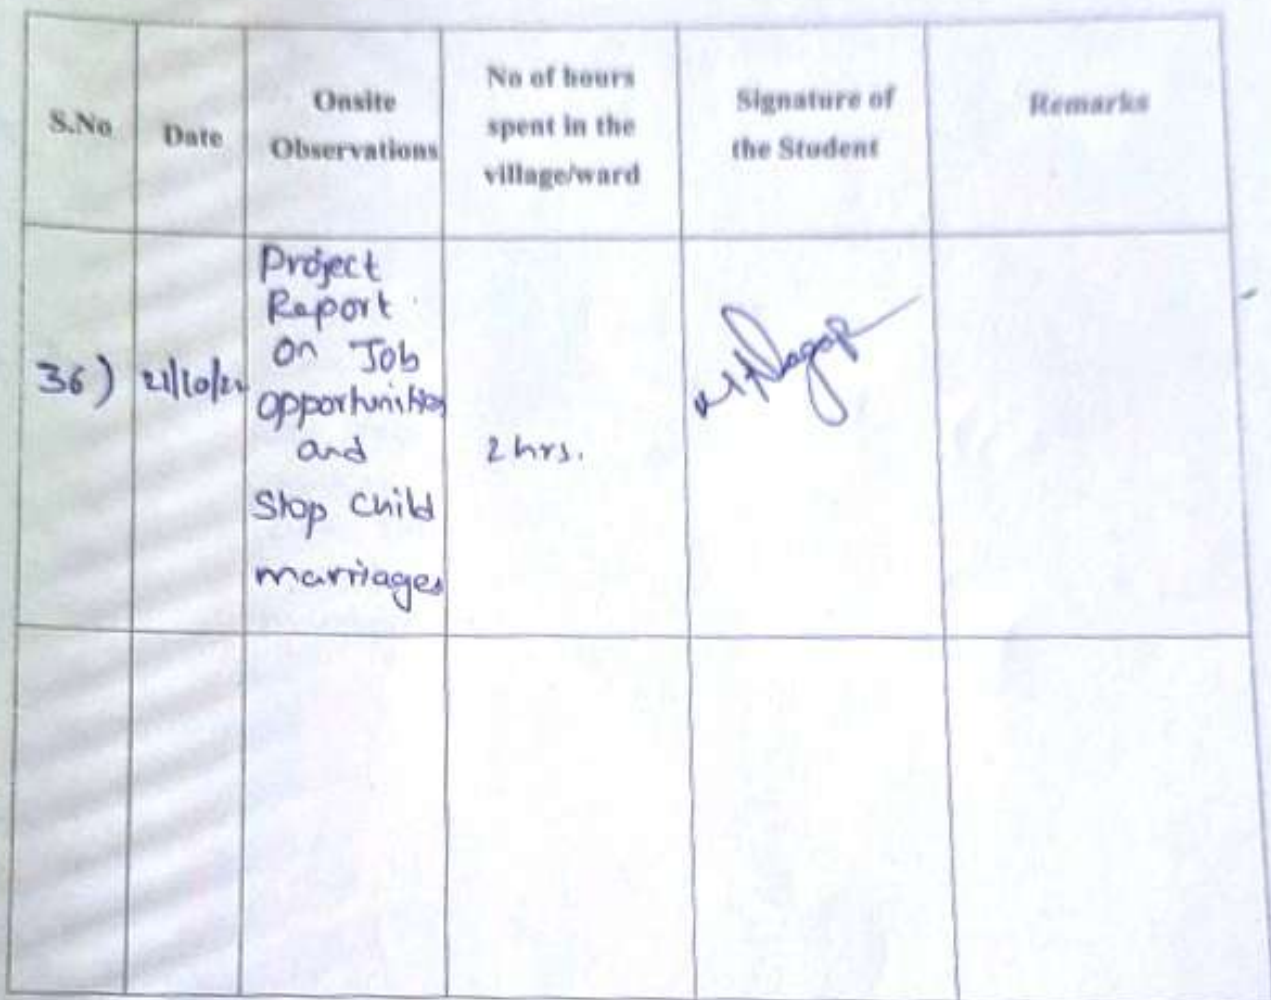 S.No
Date
Onsite
Observations
No of hours
spent in the
village/ward
Signature of
the Student
Remarks
36)
Project
Report
On Job
opportunities
and
Stop Child
marriages
2 hrs.